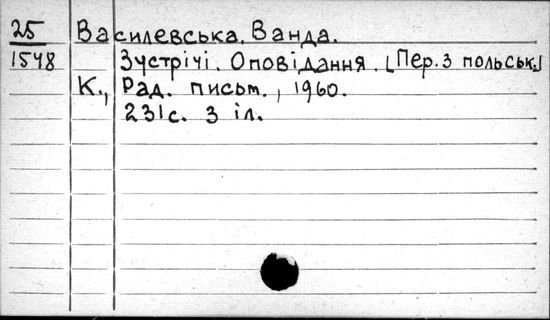 25 Василевська, Ванда.
1548 Зустрічі. Оповідання. [Пер. з польськ.]
К., Рад. письм., 1960.
231с. з іл.